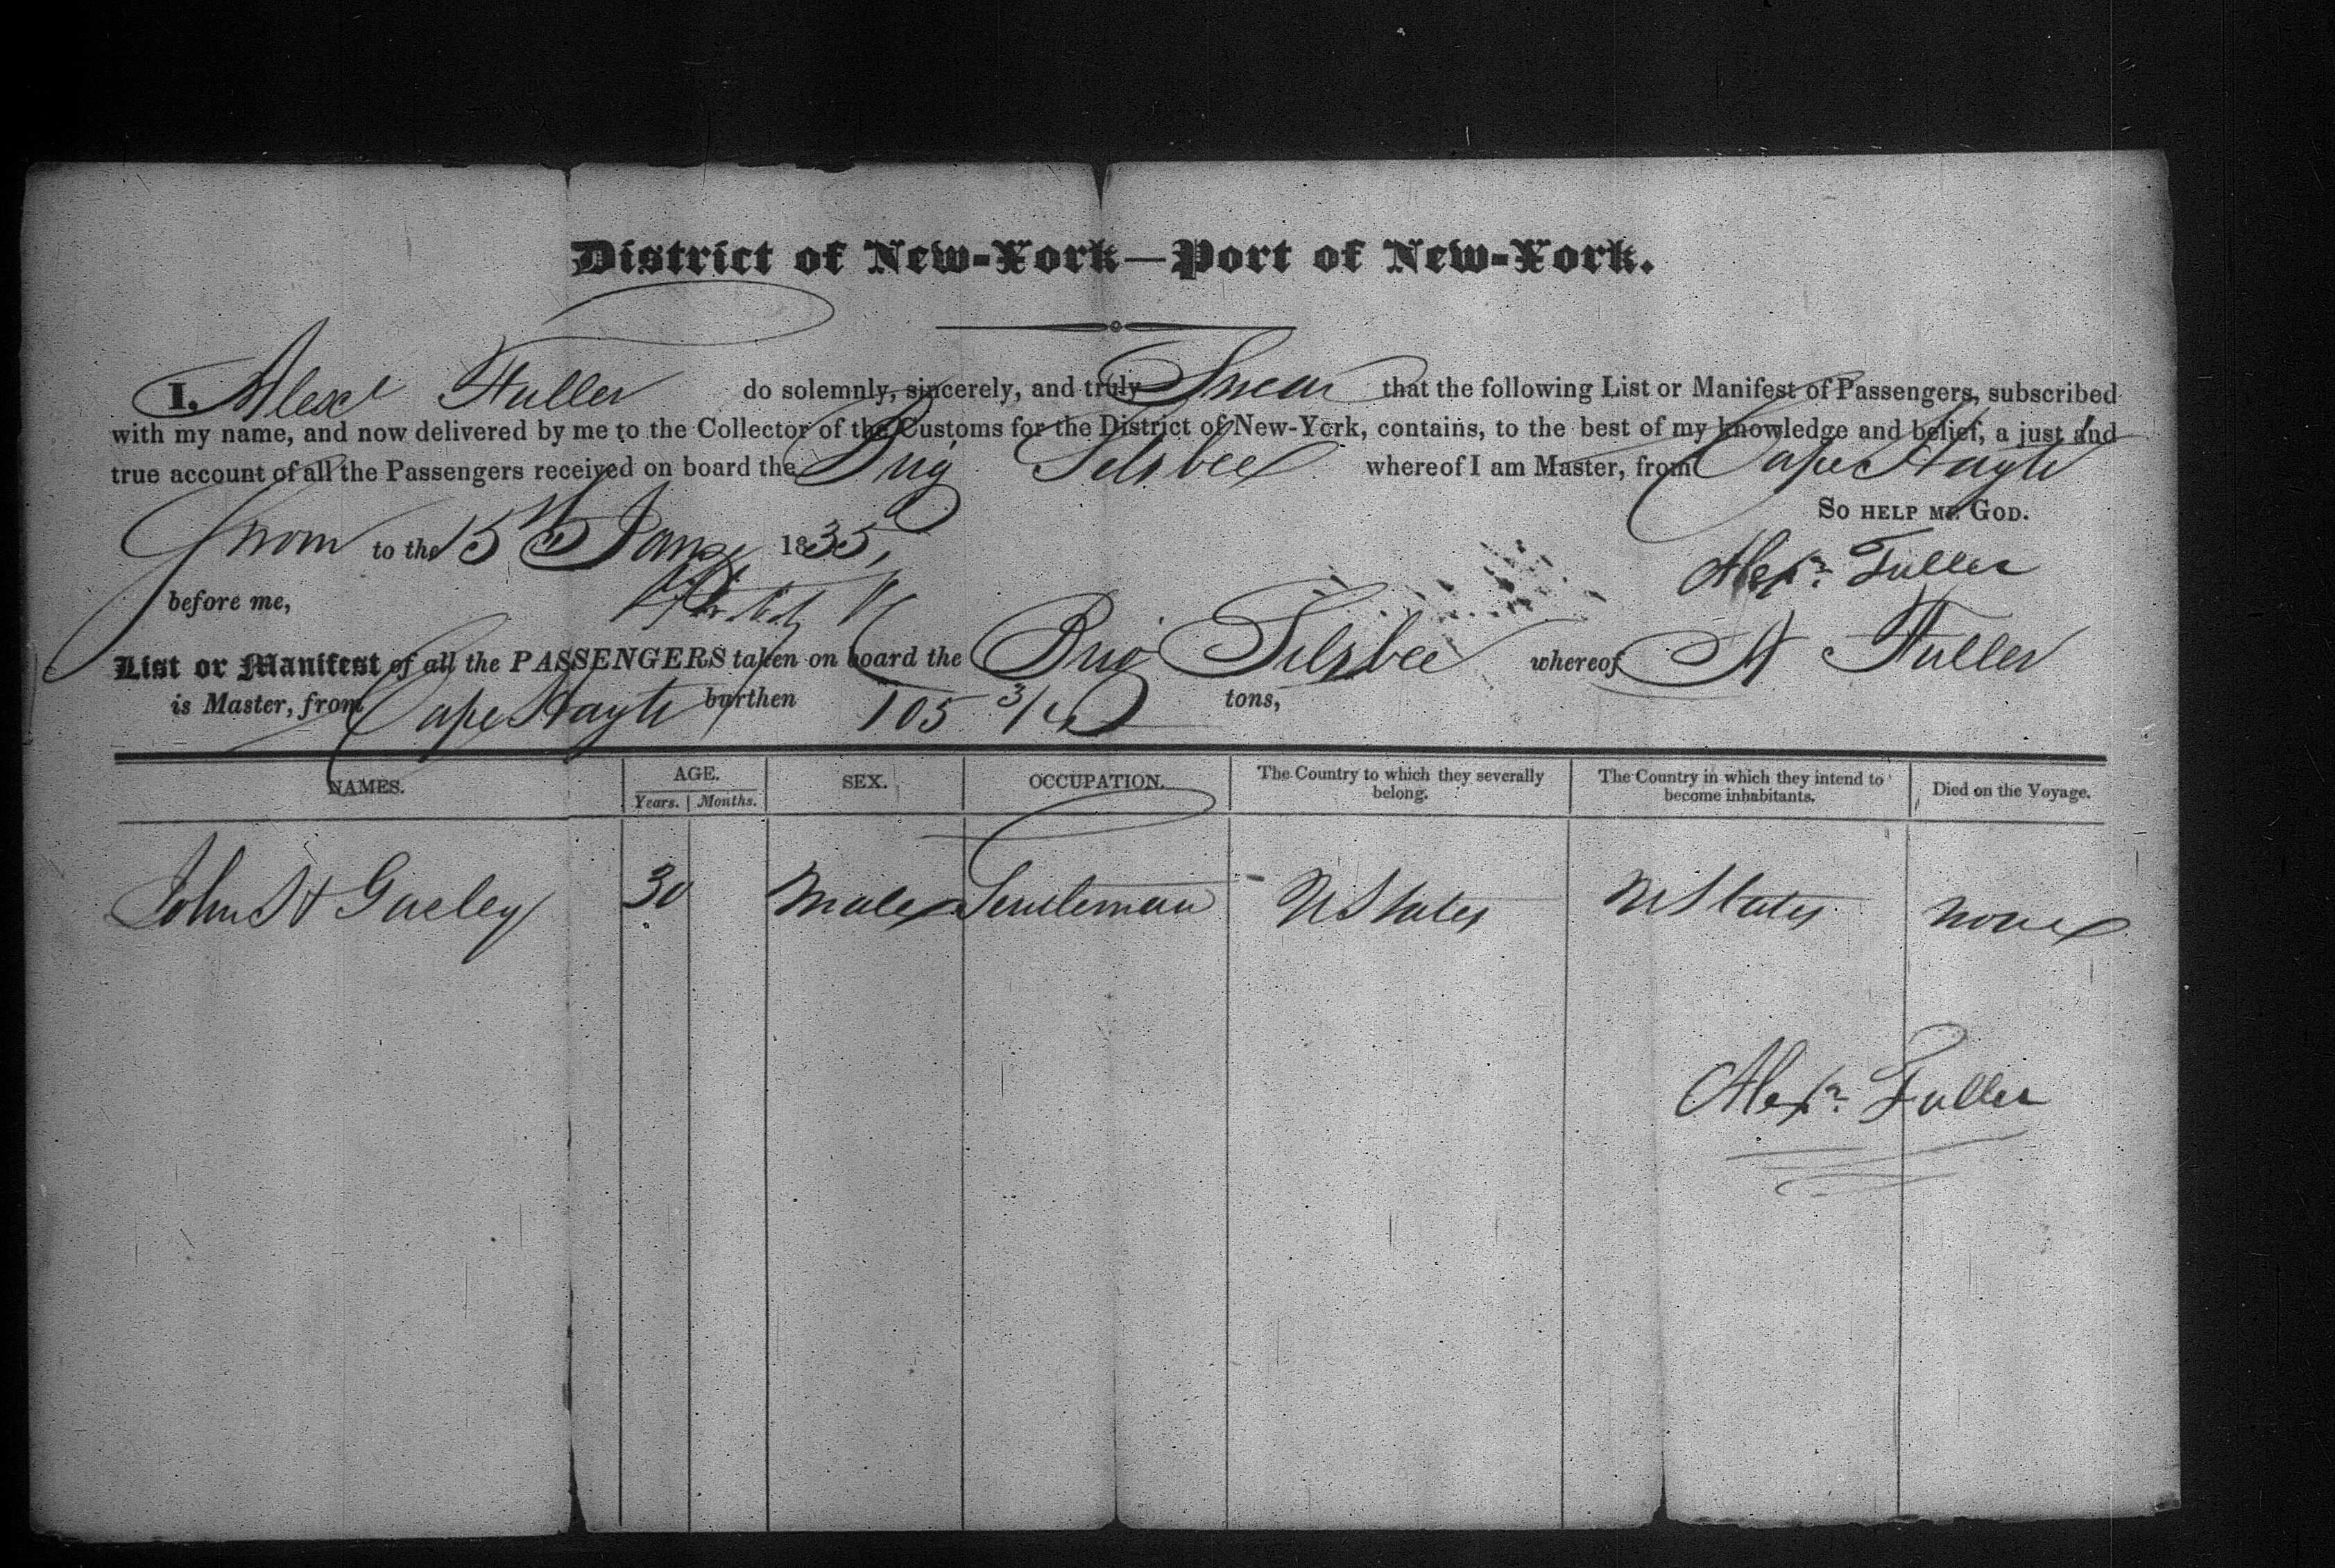 District of New-York—Port of New-York.
I, Alexr Fuller do solemnly, sincerely, and truly Swear that the following List or Manifest of Passengers, subscribed
with my name, and now delivered by me to the Collector of the Customs for the District of New-York, contains, to the best of my knowledge and belief, a just and
true account of all the Passengers received on board the Brig Silsbee whereof I am Master, from Cape Hayti
So help me God.
Sworn to the 15th Jany 1835,
Alexr. Fuller
before me,
List or Manifest of all the PASSENGERS taken on board the Brig Silsbee whereof A Fuller
is Master, from Cape Hayti burthen 105 3/4 tons,
NAMES. AGE. SEX. OCCUPATION. The Country to which they severally belong. The Country in which they intend to become inhabitants. Died on the Voyage.
Years. Months.
John 30 Male Gentleman U States U States none
Alexr. Fuller